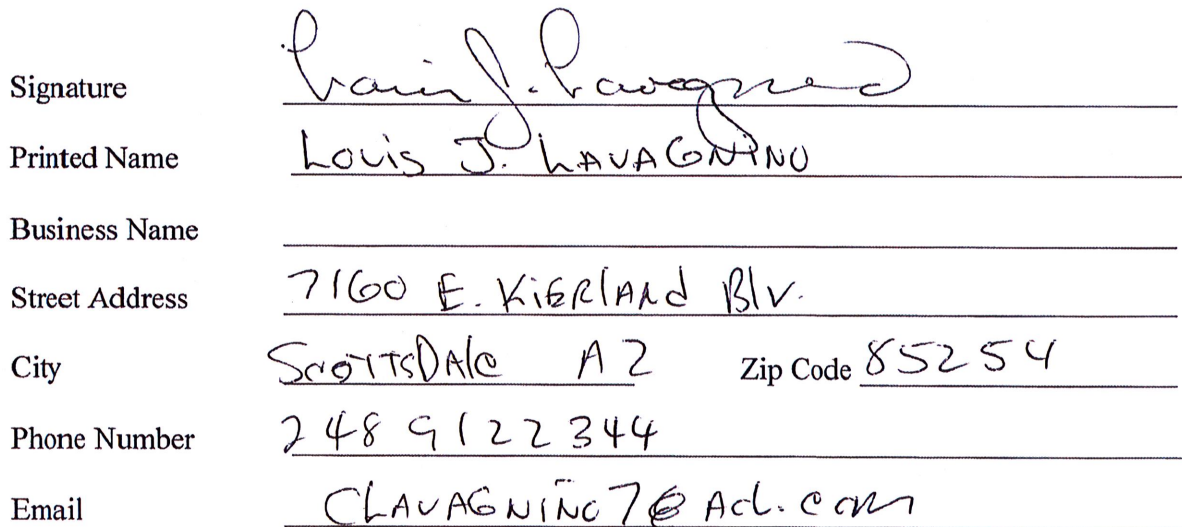 Signature Louis J. Lavagnino
Printed Name Louis J. LAVAGNINO
Business Name
Street Address 7160 E. KiERlANd Blv.
City ScoTTsDAle AZ Zip Code 85254
Phone Number 248 9122344
Email CLAVAGNINO7@AOL.com